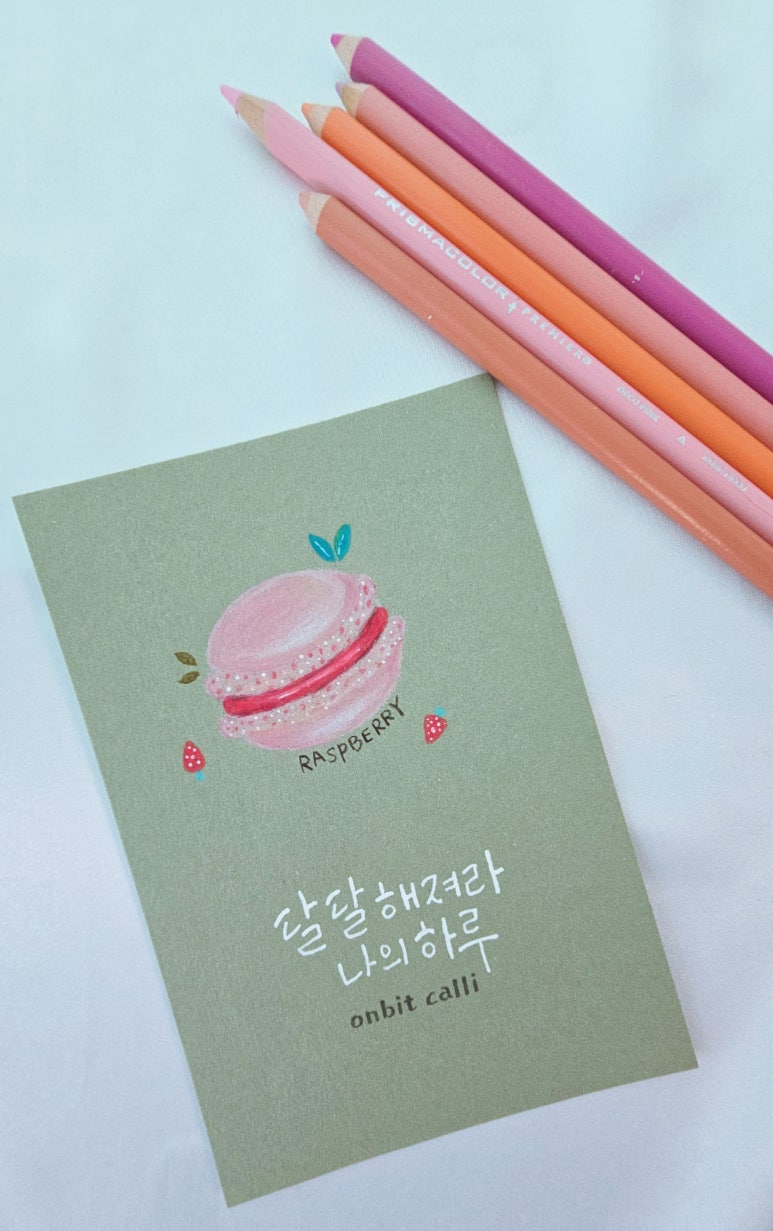 PRISMACOLOR PREMIER®
RASPBERRY
달달해져라
나의 하루
onbit calli